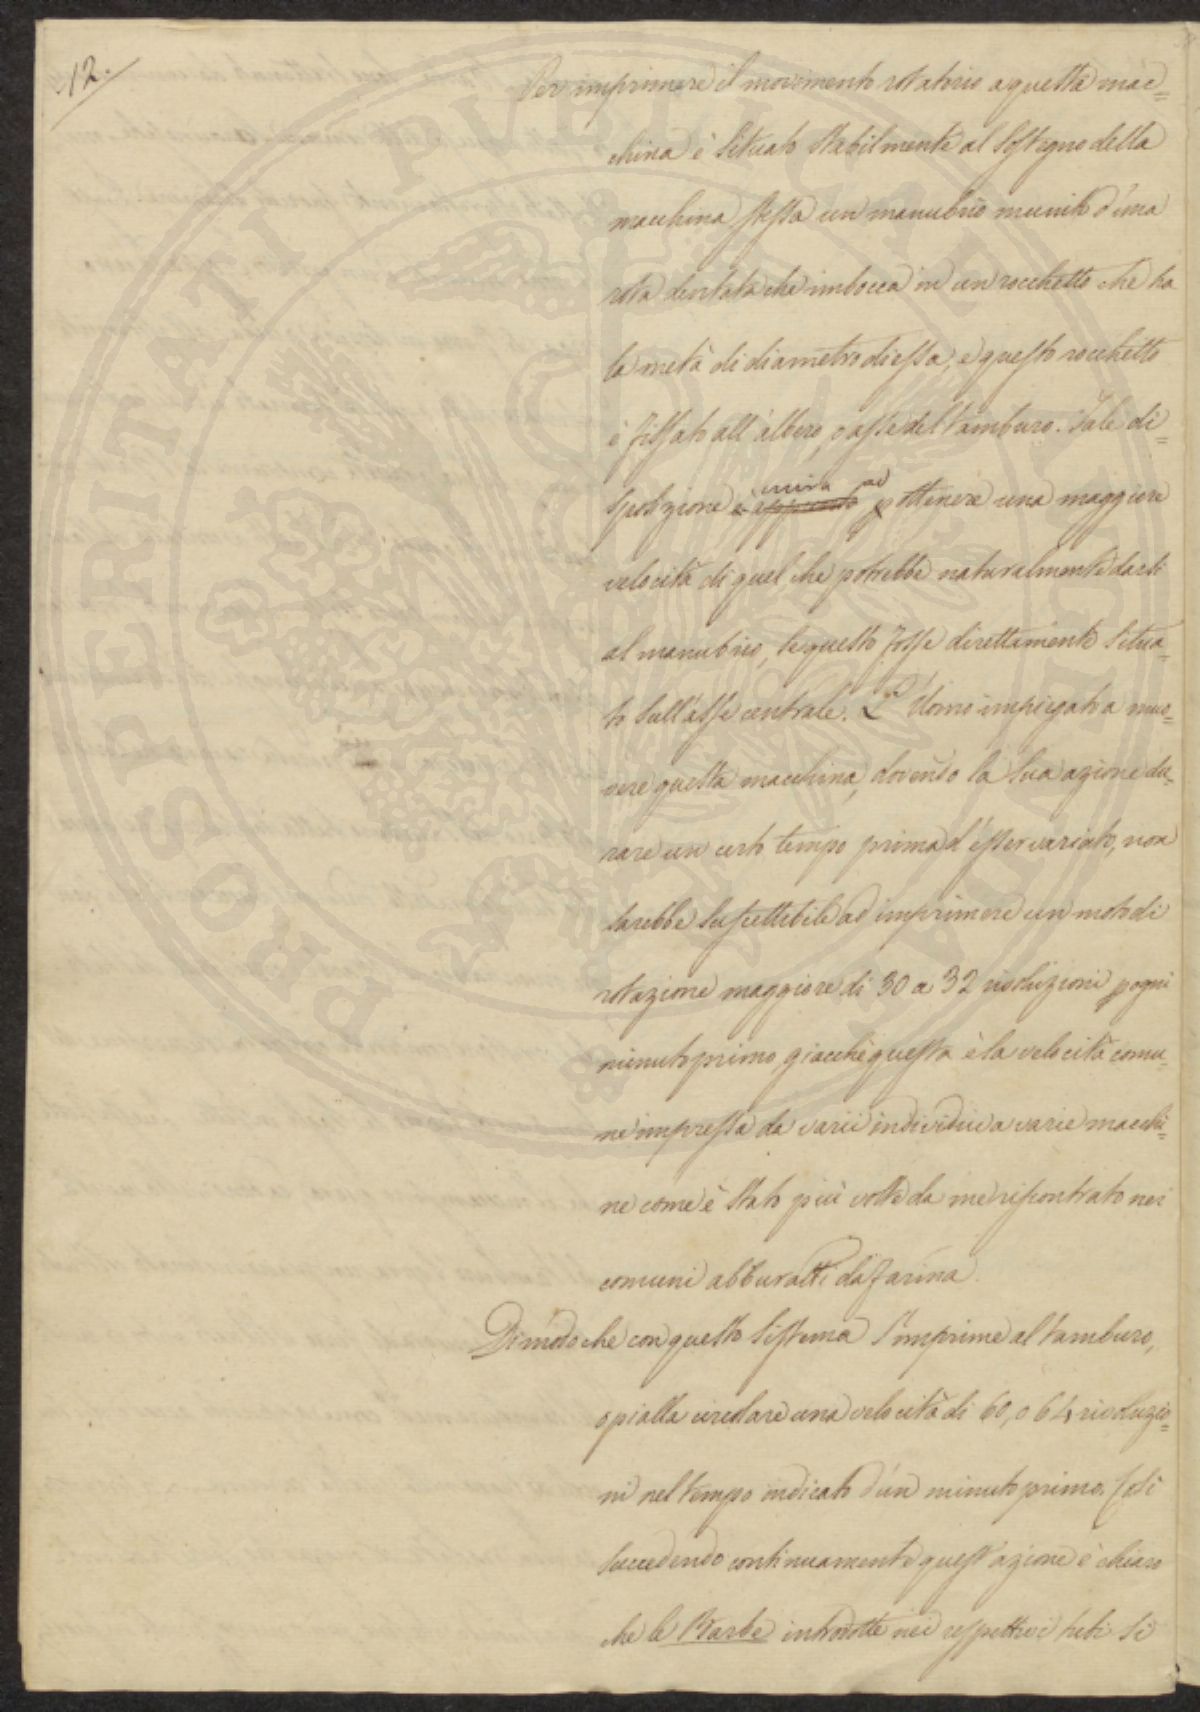 12.
Per imprimere il movimento rotatorio a questa mac=
china è situato stabilmente al sostegno della
macchina stessa un manubrio munito d'una
rota dentata che imbocca in un rocchetto che ha
la metà di diametro di essa, e questo rocchetto
è fissato all'albero, o asse del tamburo. Tale di=
sposizione mira ad ottenere una maggiore
velocità di quel che potrebbe naturalmente darsi
al manubrio, se questo fosse direttamente situa=
to sull'asse centrale. L'Uomo impiegato a muo=
vere questa macchina, dovendo la sua azione du=
rare un certo tempo prima d'esser variato, non
sarebbe suscettibile ad imprimere un moto di
rotazione maggiore di 30 a 32 rivoluzioni p ogni
minuto primo, giacchè questa è la velocità comu=
ne impressa da varii individui a varie macchi=
ne come è stato più volte da me riscontrato nei
comuni abburatti da farina.
Di modo che con questo sistema s'imprime al tamburo,
o pialla circolare una velocità di 60, o 64 rivoluzio=
ni nel tempo indicato d'un minuto primo. Così
succedendo continuamente quest'azione è chiaro
che le Barbe introdotte nei respettivi tubi si
PROSPERITATI PUBLICAE AUGENDAE